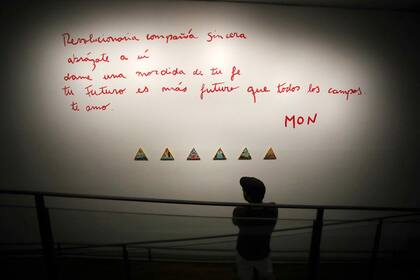 Revolucionaria compañía sincera
abrázate a mí
dame una mordida de tu fe
tu futuro es más futuro que todos los campos.
ti amo.
MON